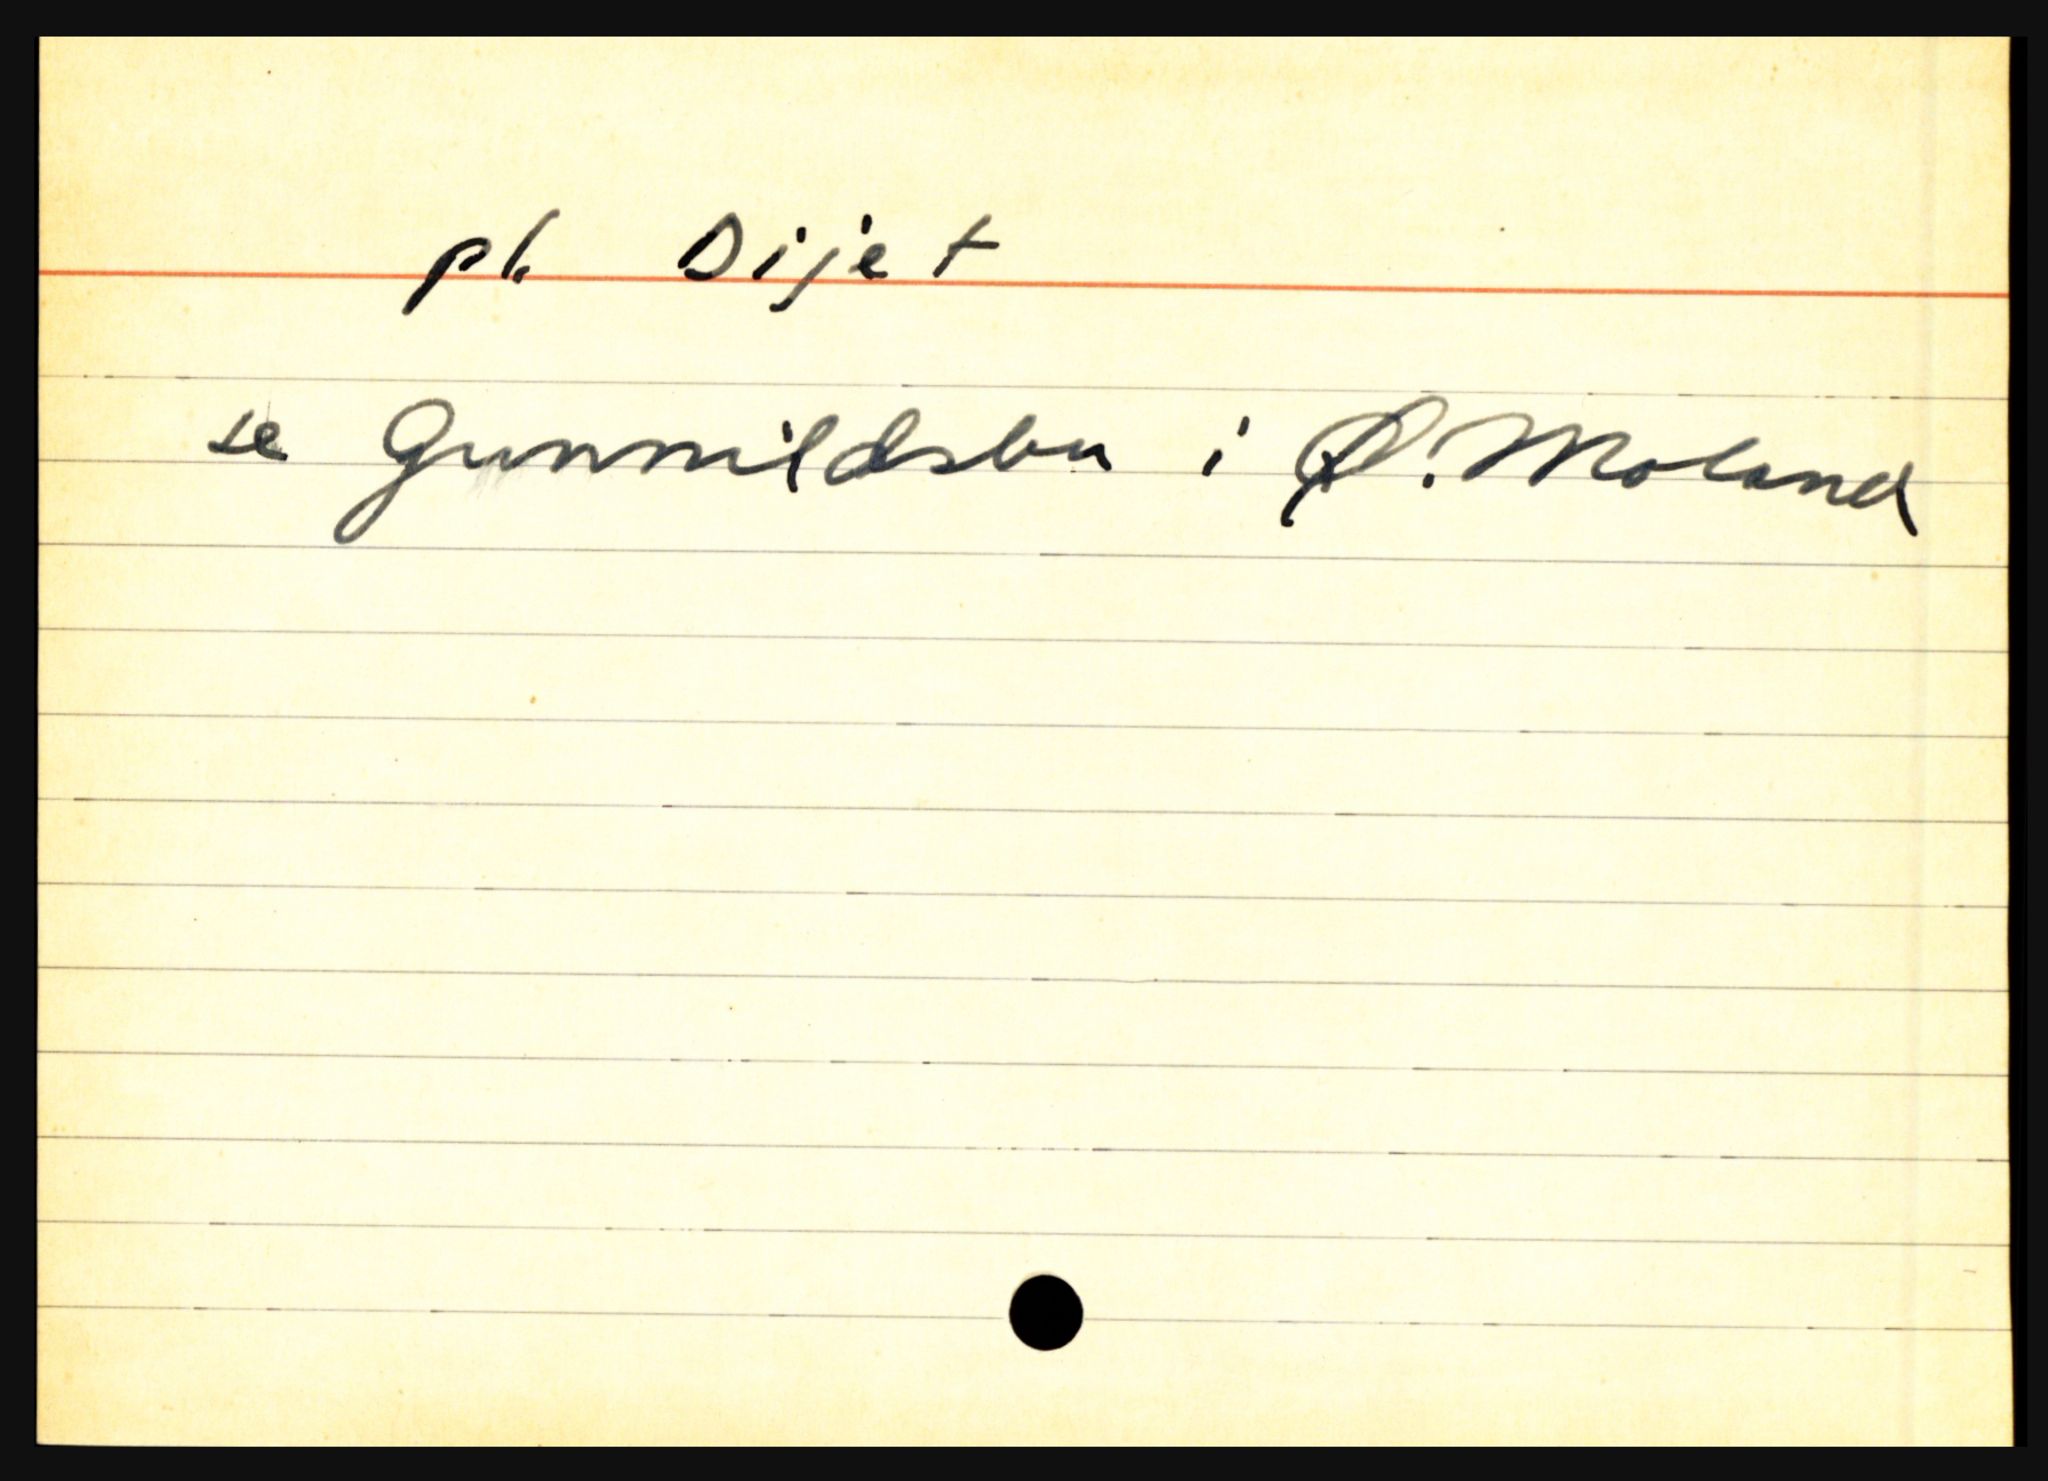 pl. Dijet
se Gunnildsbu i Ø. Moland